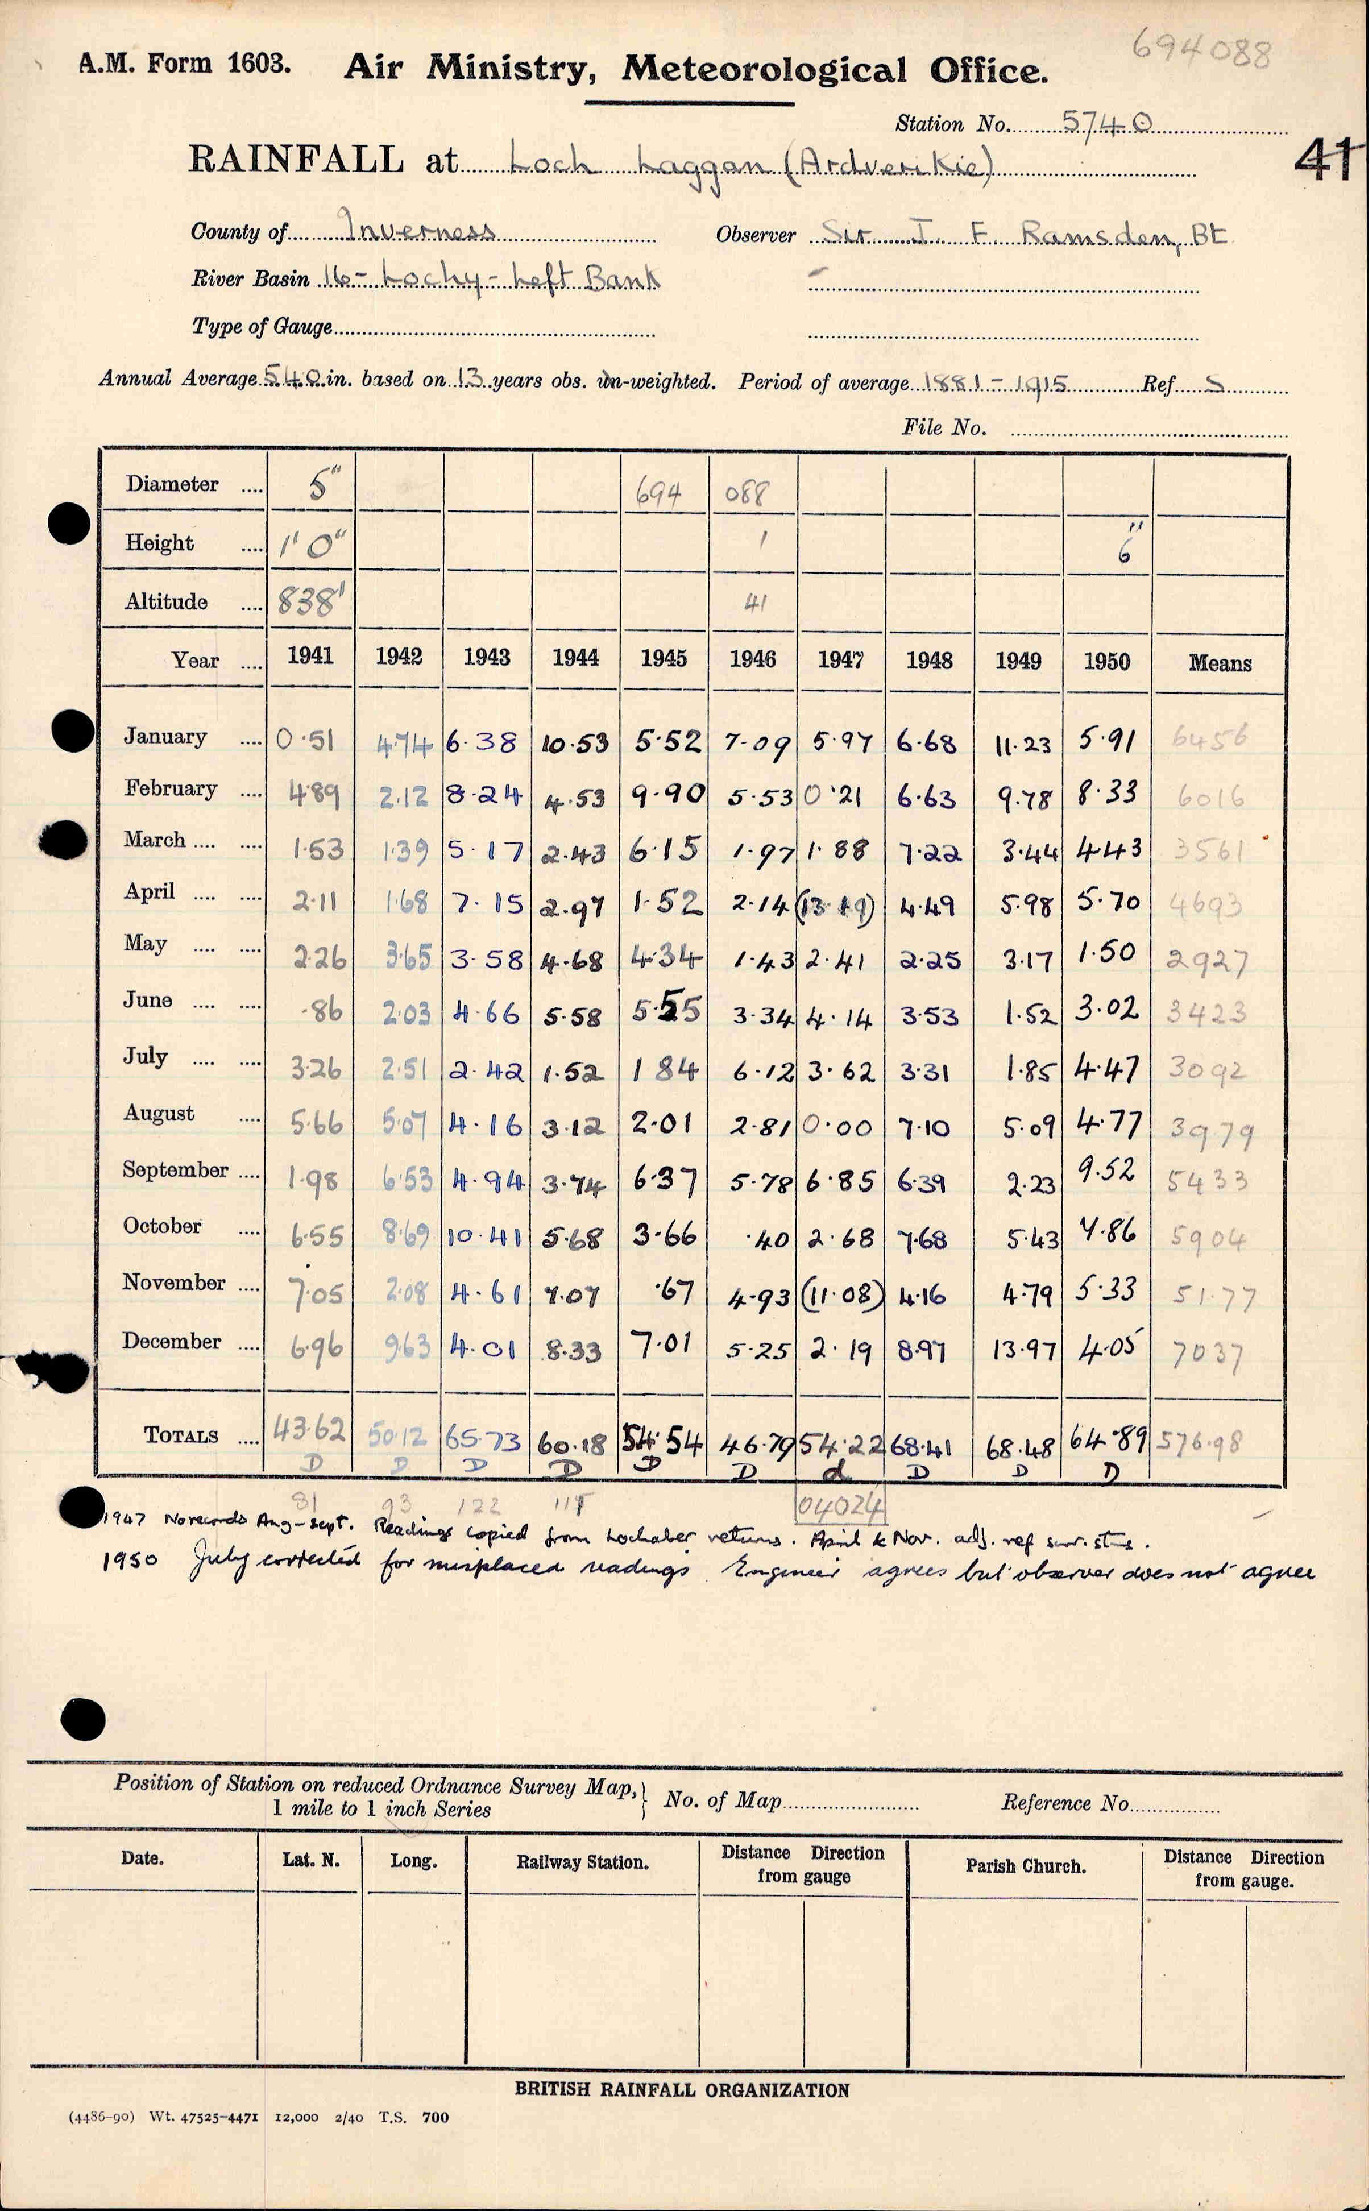 694088
A.M. Form 1603. Air Ministry, Meteorological Office.
Station No. 5740
41
RAINFALL at Loch Laggan (Ardverikie)
County of Inverness Observer Sir J. F. Ramsden, Bt.
River Basin 16 - Lochy - Left Bank
Type of Gauge
Annual Average 54.0 in. based on 13 years obs. un-weighted. Period of average 1881 - 1915 Ref. S
File No.
Diameter .... 5" 694 088
Height .... 1' 0" 1 6"
Altitude .... 838' 41
Year .... 1941 1942 1943 1944 1945 1946 1947 1948 1949 1950 Means
January .... 0.51 4.74 6.38 10.53 5.52 7.09 5.97 6.68 11.23 5.91 6456
February .... 4.89 2.12 8.24 4.53 9.90 5.53 0.21 6.63 9.78 8.33 6016
March .... .... 1.53 1.39 5.17 2.43 6.15 1.97 1.88 7.22 3.44 4.43 3561
April .... .... 2.11 1.68 7.15 2.97 1.52 2.14 (13.19) 4.49 5.98 5.70 4693
May .... .... 2.26 3.65 3.58 4.68 4.34 1.43 2.41 2.25 3.17 1.50 2927
June .... .... .86 2.03 4.66 5.58 5.55 3.34 4.14 3.53 1.52 3.02 3423
July .... .... 3.26 2.51 2.42 1.52 1 84 6.12 3.62 3.31 1.85 4.47 3092
August .... 5.66 5.07 4.16 3.12 2.01 2.81 0.00 7.10 5.09 4.77 3979
September .... 1.98 6.53 4.94 3.74 6.37 5.78 6.85 6.39 2.23 9.52 5433
October .... 6.55 8.69 10.41 5.68 3.66 .40 2.68 7.68 5.43 7.86 5904
November .... 7.05 2.08 4.61 7.07 .67 4.93 (11.08) 4.16 4.79 5.33 51.77
December .... 6.96 9.63 4.01 8.33 7.01 5.25 2.19 8.97 13.97 4.05 7037
TOTALS .... 43.62 50.12 65.73 60.18 54.54 46.79 54.22 68.41 68.48 64.89 576.98
D D D D D D d D D D
81 93 122 111 04024
1947 No records Aug-Sept. Readings copied from Lochaber returns. April & Nov. adj. ref surr. stns.
1950 July corrected for misplaced readings. Engineer agrees but observer does not agree
Position of Station on reduced Ordnance Survey Map, } No. of Map Reference No.
1 mile to 1 inch Series
Date. Lat. N. Long. Railway Station. Distance Direction from gauge Parish Church. Distance Direction from gauge.
BRITISH RAINFALL ORGANIZATION
(4486-90) Wt. 47525-4471 12,000 2/40 T.S. 700